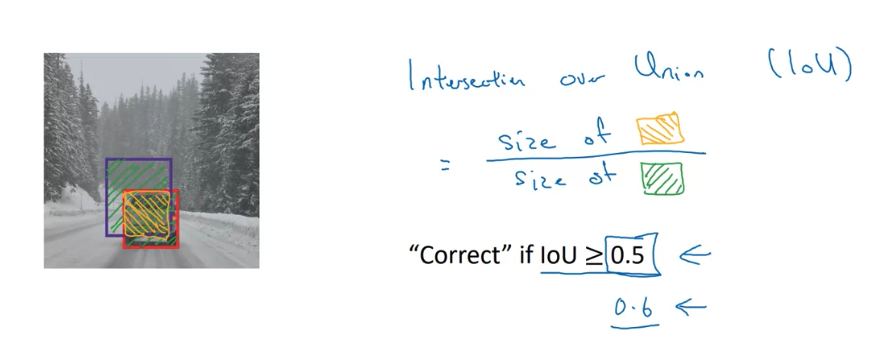 Intersection over Union (IoU)
size of
=
size of
“Correct” if IoU ≥ 0.5 ←
0.6 ←